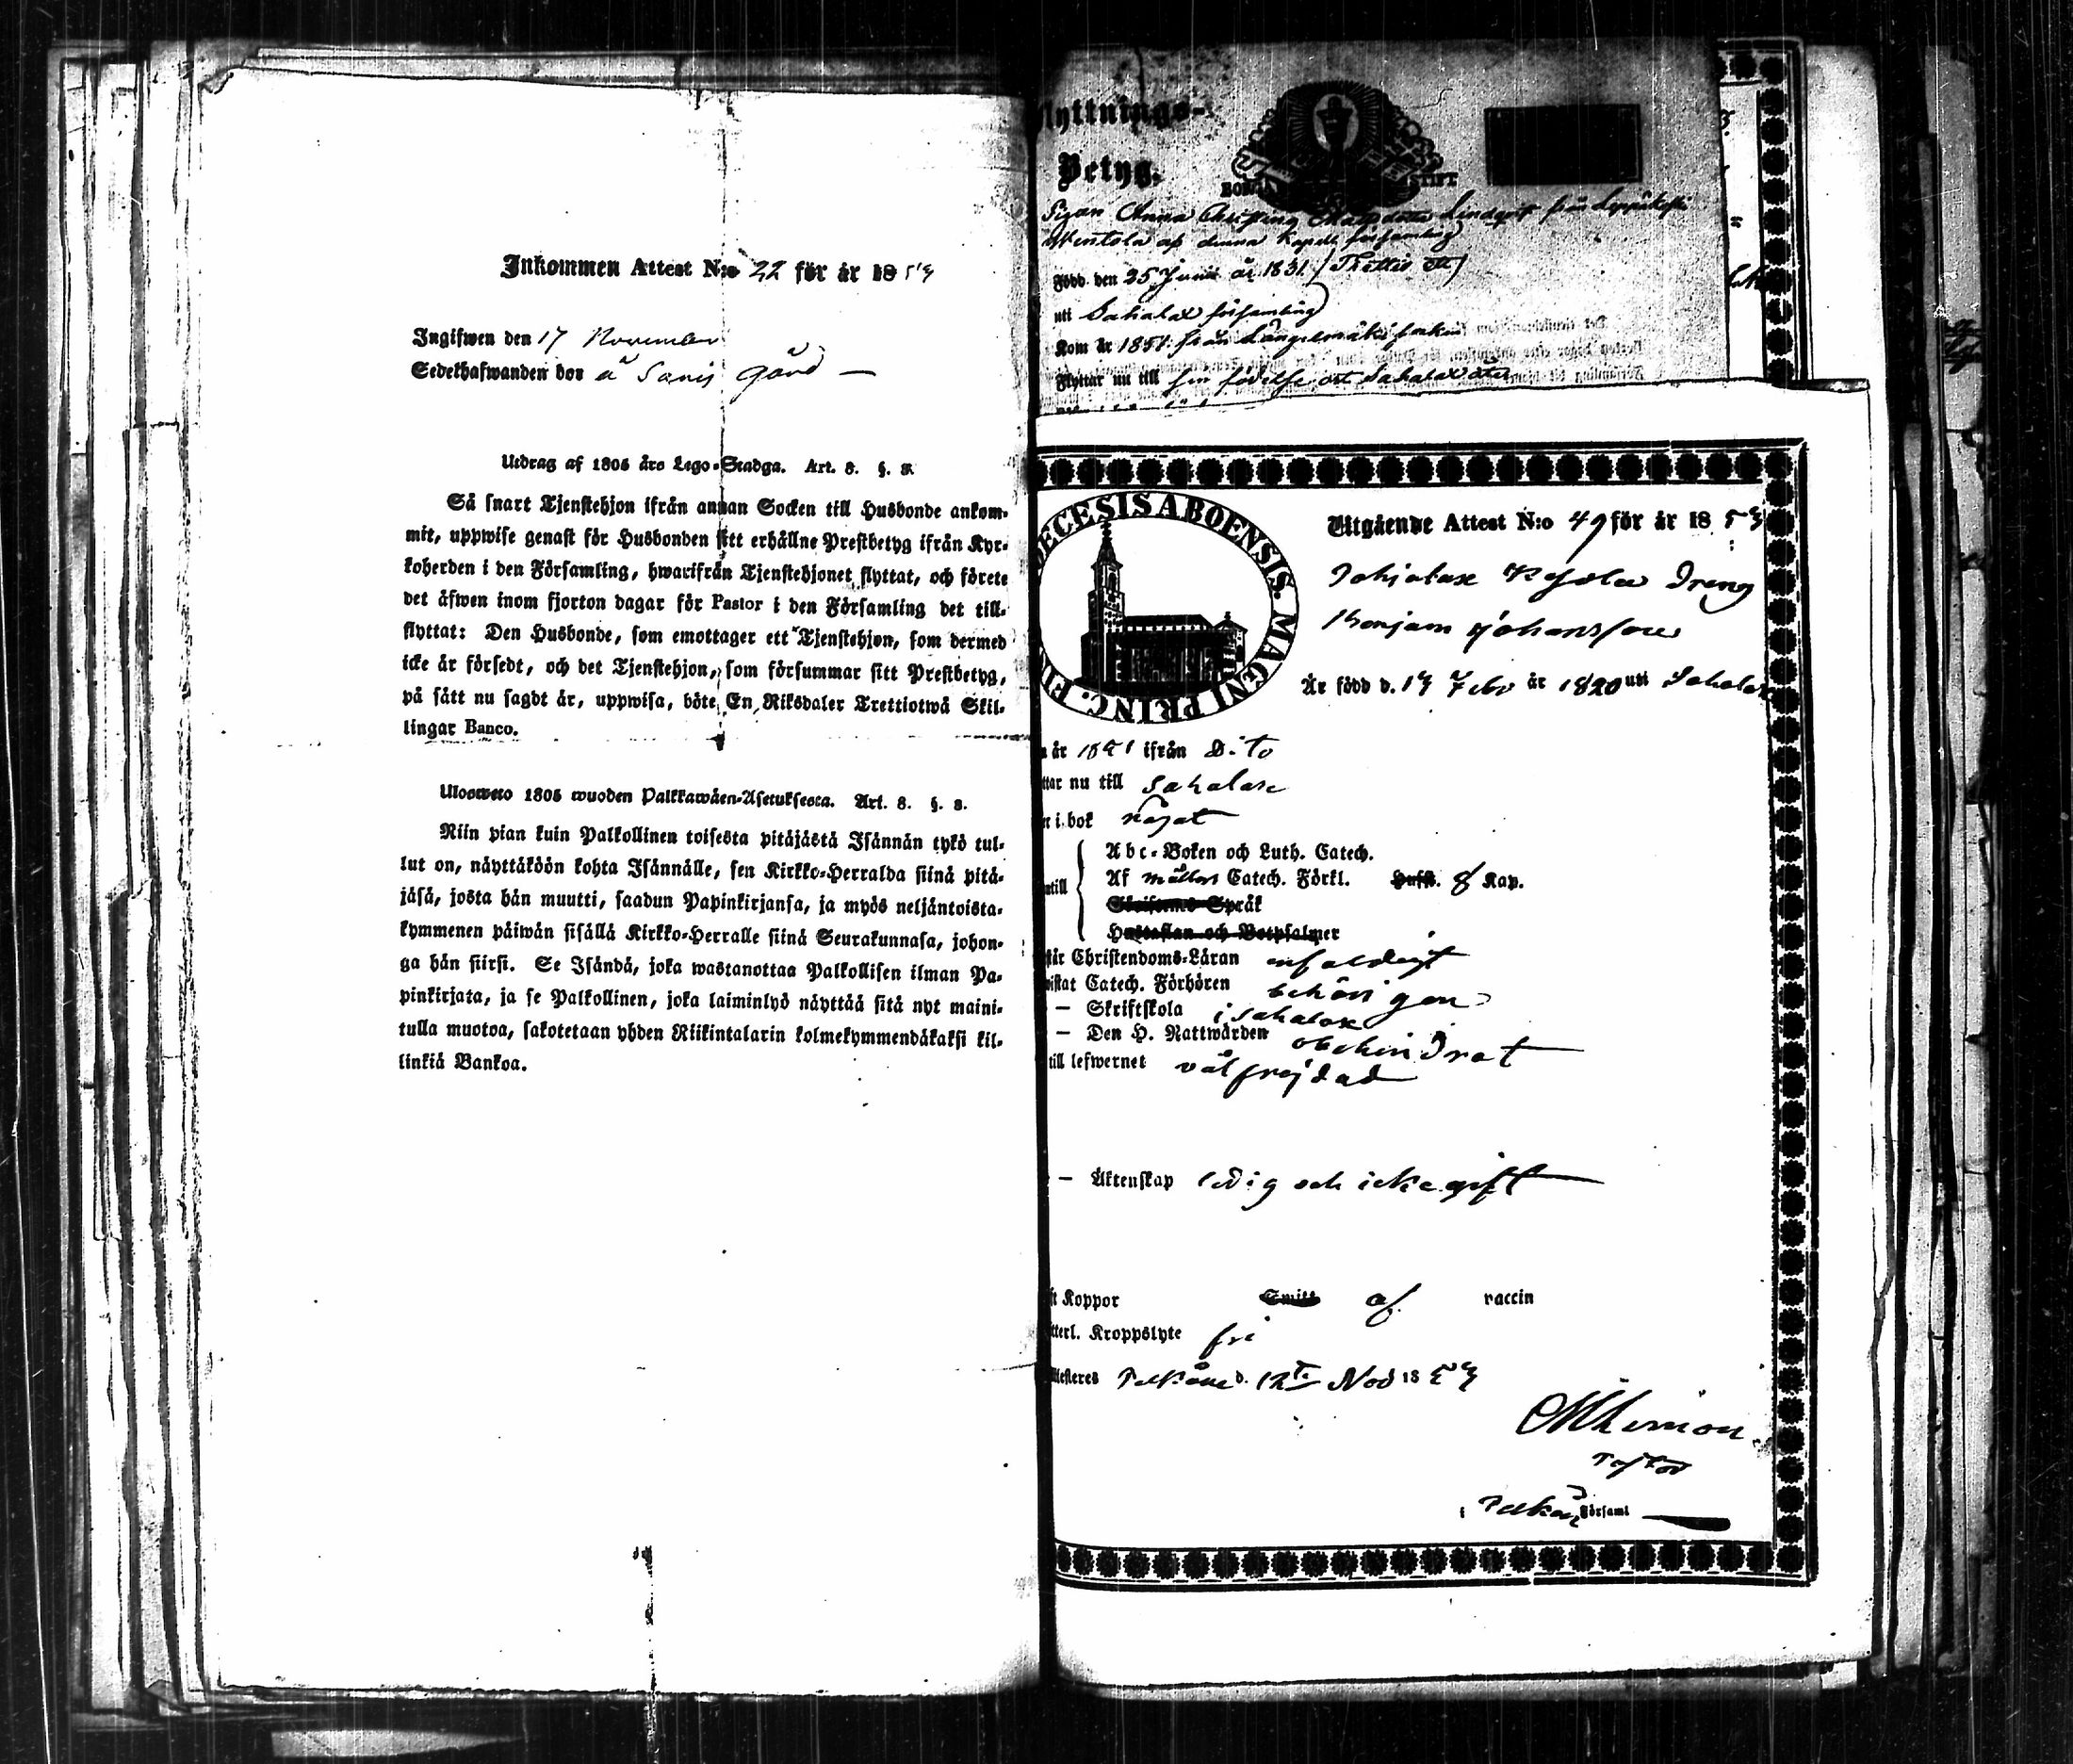 Inkommen Attest N:o 22 för år 1853
Ingifwen den 17 November
Sedelhafwanden bor å Saris gård —
Utdrag af 1805 års Lego-Stadga. Art. 8. §. 8.
Så snart Tjenstehjon ifrån annan Socken till Husbonde ankom-
mit, uppwise genast för Husbonden sitt erhållne Prestbetyg ifrån Kyr-
koherden i den Församling, hwarifrån Tjenstehjonet flyttat, och förete
det äfwen inom fjorton dagar för Pastor i den Församling det till-
flyttat: Den Husbonde, som emottager ett Tjenstehjon, som dermed
icke är försedt, och det Tjenstehjon, som försummar sitt Prestbetyg,
på sätt nu sagdt är, uppwisa, böte En Riksdaler Trettiotwå Skil-
lingar Banco.
Ulosweto 1805 wuoden Palkkawäen-Asetuksesta. Art. 8. §. 8.
Niin pian kuin Palkollinen toisesta pitäjästä Isännän tykö tul-
lut on, näyttäköön kohta Isännälle, sen Kirkko-Herralda siinä pitä-
jäsä, josta hän muutti, saadun Papinkirjansa, ja myös neljäntoista-
kymmenen päiwän sisällä Kirkko-Herralle siinä Seurakunnasa, johon-
ga hän siirsi. Se Isändä, joka wastanottaa Palkollisen ilman Pa-
pinkirjata, ja se Palkollinen, joka laiminlyö näyttää sitä nyt maini-
tulla muotoa, sakotetaan yhden Riikintalarin kolmekymmendäkaksi kil-
linkiä Bankoa.
lyttnings-
Betyg.
STIFT.
Pigan Anna Lindqvist från
af denna Kapell församling
Född den 25 Junii år 1831 (Trettio ett)
uti Sahalax församling
Kom år 1851 från Längelmäki socken
Flyttar nu till sin födelse ort Sahalax åter
DECESIS ABOENSIS. MAGNI PRINC. FIN
Utgående Attest N:o 49 för år 1853
Dreng
Benjam Johansson
Är född d. 13 Febr år 1820 uti Sahalax
år 1851 ifrån Dito
ttar nu till Sahalax
er i bok något
ntill
Abc-Boken och Luth. Catech.
Af möllers Catech. Förkl. Husft. 8 Kap.
Skriftens Språk
Hustaflan och Botpsalmer
står Christendoms-Läran enfaldigt
wistat Catech. Förhören behörigen
— Skriftskola i Sahalax
— Den H. Nattwarden obehindrat
till lefwernet väl frejdad
— Äktenskap ledig och icke gift
ft Koppor Smitt af vaccin
tterl. Kroppslyte fri
ttesteres Pelkäne d. 12te Nov 1853
Pastor
i Pelkäne Församl